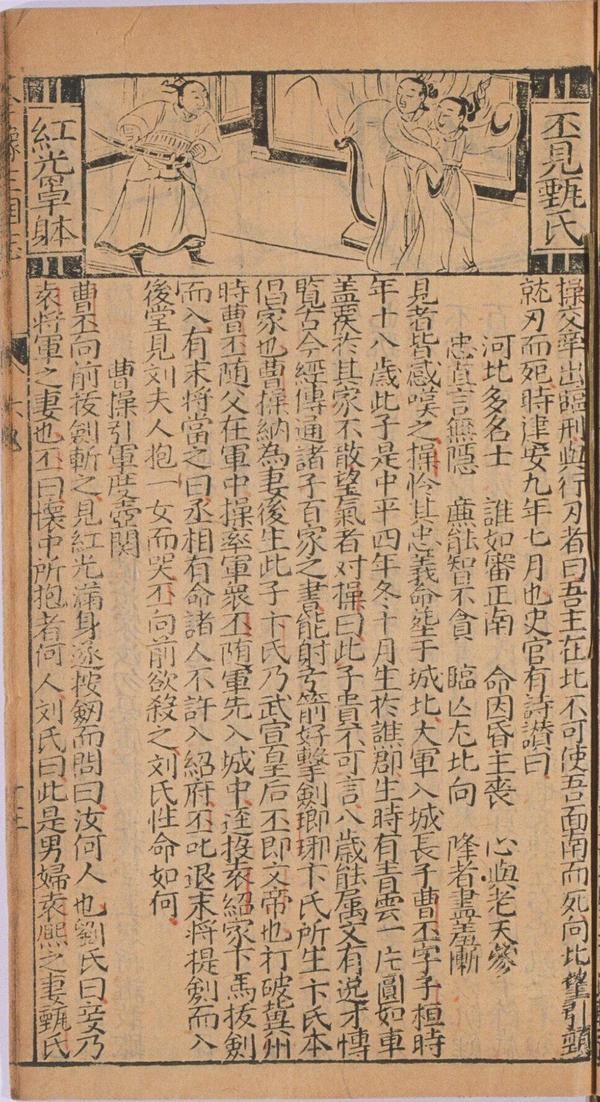 丕見甄氏
紅光罩躰
操父辛出臨刑與行刃者曰吾主在北不可使吾面南而死向北望引頸
就刃而死時建安九年七月也史官有詩讃曰
河北多名士 誰如審正南 命因昏主喪 心與老天參
忠真言無隱 廉能智不貪 臨亾尤北向 降者盡羞慚
見者皆感嘆之操怜其忠義命塟于城北大軍入城長子曹丕字子桓時
年十八歲此子是中平四年冬十月生扵譙郡生時有青雲一片圓如車
盖覆扵其家不散望氣者对操曰此子貴不可言八歲能属文有逸才慱
覧古今經傳通諸子百家之書能射弓箭好擊劍瑯琊卞氏所生卞氏本
倡家也曹操納為妻後生此子卞氏乃武宣皇后丕即文帝也打破冀州
時曹丕随父在軍中操率軍衆丕随軍先入城中逕投袁紹家下馬抜劍
而入有末將當之曰丞相有命諸人不許入紹府丕叱退末将提劍而入
後堂見刘夫人抱一女而哭丕向前欲殺之刘氏性命如何
曹操引軍度壺関
曹丕向前抜劍斬之見紅光滿身遂按劒而問曰汝何人也劉氏曰妾乃
袁将軍之妻也丕曰懷中所抱者何人刘氏曰此是男婦袁熈之妻甄氏